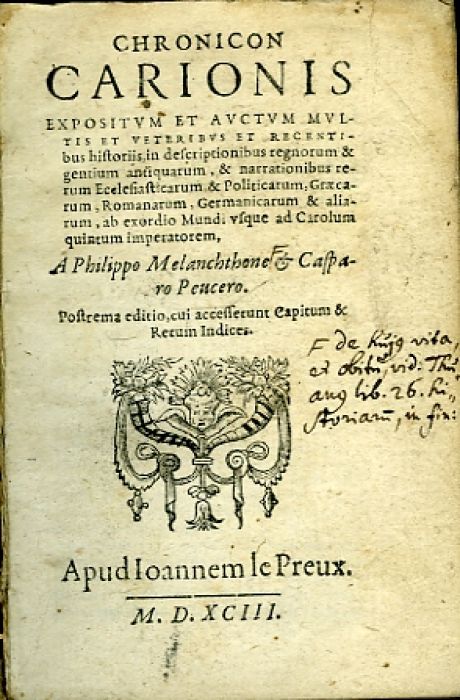 CHRONICON
CARIONIS
EXPOSITVM ET AVCTVM MVL-
TIS ET VETERIBVS ET RECENTI-
bus historiis, in descriptionibus regnorum &
gentium antiquarum, & narrationibus re-
rum Ecclesiasticarum & Politicarum, Græca-
rum, Romanarum, Germanicarum & alia-
rum, ab exordio Mundi vsque ad Carolum
quintum imperatorem,
A Philippo Melanchthone F & Caspa-
ro Peucero.
Postrema editio, cui accesserunt Capitum &
Rerum Indices.
F de hujq vita,
et obitu, vid. Thu
anq lib. 26. hi-
storiarū, in fin:
Apud Ioannem le Preux.
M. D. XCIII.